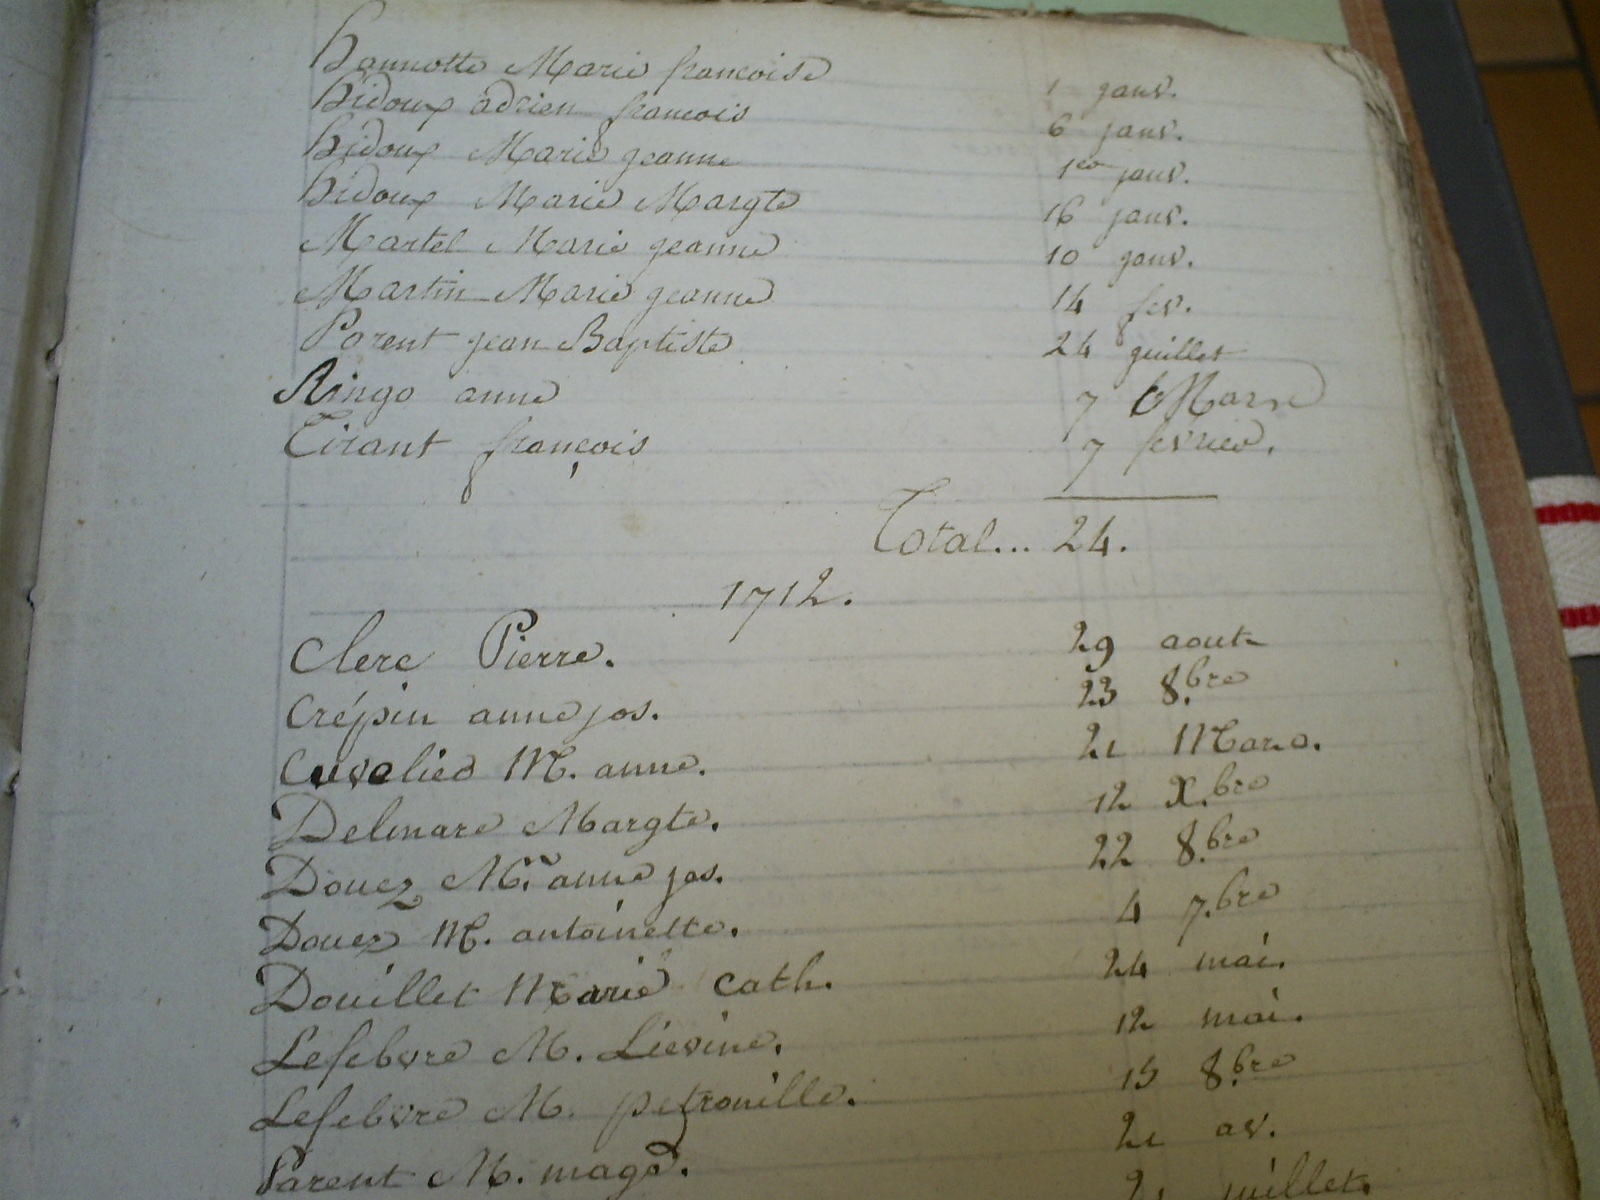 hannotte Marie francoise 1 janv.
hidoux adrien francois 6 janv.
hidoux Marie jeanne 1er janv.
hidoux Marie Margte 16 janv.
Martel Marie jeanne 10 janv.
Martin Marie jeanne 14 fev.
Parent jean Baptiste 24 juillet
Ringo anne 7 Mars
Tirant françois 7 fevrier.
Total... 24.
1712.
Clerc Pierre. 29 aout
Crépin anne jos. 23 8.bre
Cuvelier M. anne. 21 Mars.
Delmare Margte. 12 X.bre
Douez M. anne jos. 22 8.bre
Douez M. antoinette. 4 7.bre
Douillet Marie Cath. 24 mai.
Lefebvre M. Lievine. 12 mai.
Lefebvre M. petronille. 15 8.bre
Parent M. magd. 21 av.
juillet.